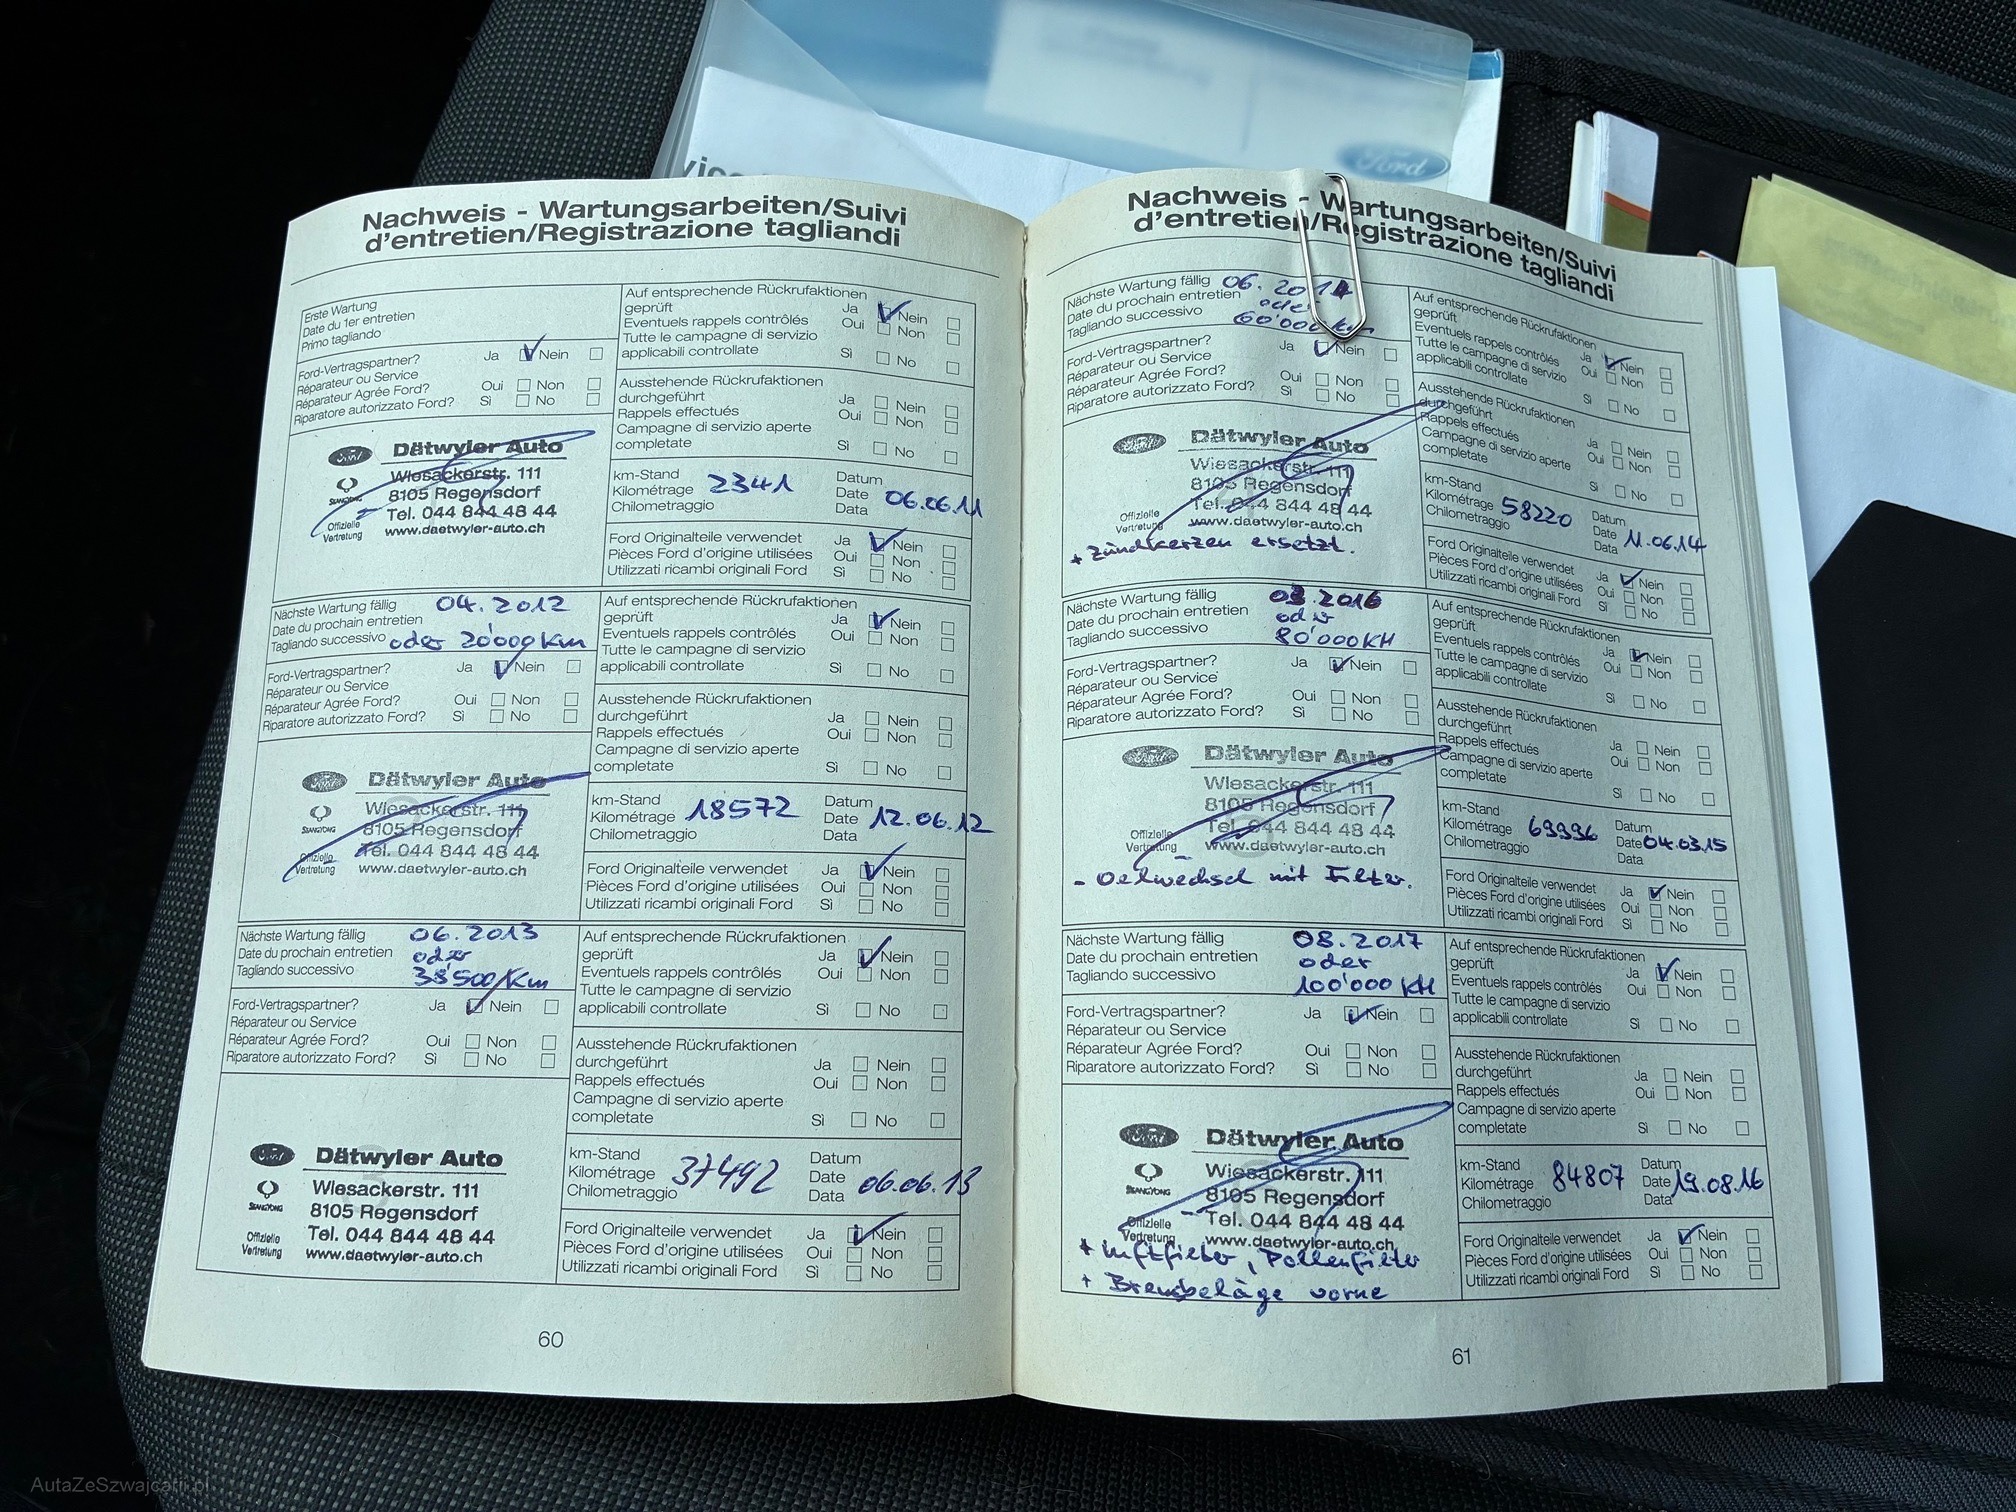 vice
Ford
Nachweis - Wartungsarbeiten/Suivi
d'entretien/Registrazione tagliandi
Erste Wartung
Date du 1er entretien
Primo tagliando
Ford-Vertragspartner? Ja Nein
Réparateur ou Service
Réparateur Agrée Ford? Oui Non
Riparatore autorizzato Ford? Sì No
Dätwyler Auto
Wiesackerstr. 111
8105 Regensdorf
Tel. 044 844 48 44
www.daetwyler-auto.ch
SSANGYONG
Offizielle
Vertretung
Auf entsprechende Rückrufaktionen
geprüft Ja Nein
Eventuels rappels contrôlés Oui Non
Tutte le campagne di servizio
applicabili controllate Sì No
Ausstehende Rückrufaktionen
durchgeführt Ja Nein
Rappels effectués Oui Non
Campagne di servizio aperte
completate Sì No
km-Stand
Kilométrage 2341
Chilometraggio
Datum
Date 06.06.11
Data
Ford Originalteile verwendet Ja Nein
Pièces Ford d'origine utilisées Oui Non
Utilizzati ricambi originali Ford Sì No
Nächste Wartung fällig 04.2012
Date du prochain entretien
Tagliando successivo oder 20'000 km
Ford-Vertragspartner? Ja Nein
Réparateur ou Service
Réparateur Agrée Ford? Oui Non
Riparatore autorizzato Ford? Sì No
Dätwyler Auto
Wiesackerstr. 111
8105 Regensdorf
Tel. 044 844 48 44
www.daetwyler-auto.ch
SSANGYONG
Offizielle
Vertretung
Auf entsprechende Rückrufaktionen
geprüft Ja Nein
Eventuels rappels contrôlés Oui Non
Tutte le campagne di servizio
applicabili controllate Sì No
Ausstehende Rückrufaktionen
durchgeführt Ja Nein
Rappels effectués Oui Non
Campagne di servizio aperte
completate Sì No
km-Stand
Kilométrage 18572
Chilometraggio
Datum
Date 12.06.12
Data
Ford Originalteile verwendet Ja Nein
Pièces Ford d'origine utilisées Oui Non
Utilizzati ricambi originali Ford Sì No
Nächste Wartung fällig 06.2013
Date du prochain entretien oder
Tagliando successivo 38'500 Km
Ford-Vertragspartner? Ja Nein
Réparateur ou Service
Réparateur Agrée Ford? Oui Non
Riparatore autorizzato Ford? Sì No
Dätwyler Auto
Wiesackerstr. 111
8105 Regensdorf
Tel. 044 844 48 44
www.daetwyler-auto.ch
SSANGYONG
Offizielle
Vertretung
Auf entsprechende Rückrufaktionen
geprüft Ja Nein
Eventuels rappels contrôlés Oui Non
Tutte le campagne di servizio
applicabili controllate Sì No
Ausstehende Rückrufaktionen
durchgeführt Ja Nein
Rappels effectués Oui Non
Campagne di servizio aperte
completate Sì No
km-Stand
Kilométrage 37492
Chilometraggio
Datum
Date 06.06.13
Data
Ford Originalteile verwendet Ja Nein
Pièces Ford d'origine utilisées Oui Non
Utilizzati ricambi originali Ford Sì No
60
Nachweis - Wartungsarbeiten/Suivi
d'entretien/Registrazione tagliandi
Nächste Wartung fällig
Date du prochain entretien oder
Tagliando successivo 60'000 km
Ford-Vertragspartner? Ja Nein
Réparateur ou Service
Réparateur Agrée Ford? Oui Non
Riparatore autorizzato Ford? Sì No
Dätwyler Auto
Wiesackerstr. 111
8105 Regensdorf
Tel. 044 844 48 44
www.daetwyler-auto.ch
Offizielle
Vertretung
+ Zündkerzen ersetzt.
Auf entsprechende Rückrufaktionen
geprüft Ja Nein
Eventuels rappels contrôlés Oui Non
Tutte le campagne di servizio
applicabili controllate Sì No
Ausstehende Rückrufaktionen
durchgeführt Ja Nein
Rappels effectués Oui Non
Campagne di servizio aperte
completate Sì No
km-Stand
Kilométrage 58220
Chilometraggio
Datum
Date 11.06.14
Data
Ford Originalteile verwendet Ja Nein
Pièces Ford d'origine utilisées Oui Non
Utilizzati ricambi originali Ford Sì No
Nächste Wartung fällig 03.2016
Date du prochain entretien oder
Tagliando successivo 80'000 KM
Ford-Vertragspartner? Ja Nein
Réparateur ou Service
Réparateur Agrée Ford? Oui Non
Riparatore autorizzato Ford? Sì No
Dätwyler Auto
Wiesackerstr. 111
8105 Regensdorf
Tel. 044 844 48 44
www.daetwyler-auto.ch
Offizielle
Vertretung
- Oelwechsel mit Filter.
Auf entsprechende Rückrufaktionen
geprüft Ja Nein
Eventuels rappels contrôlés Oui Non
Tutte le campagne di servizio
applicabili controllate Sì No
Ausstehende Rückrufaktionen
durchgeführt Ja Nein
Rappels effectués Oui Non
Campagne di servizio aperte
completate Sì No
km-Stand
Kilométrage 69996
Chilometraggio
Datum
Date 04.03.15
Data
Ford Originalteile verwendet Ja Nein
Pièces Ford d'origine utilisées Oui Non
Utilizzati ricambi originali Ford Sì No
Nächste Wartung fällig 08.2017
Date du prochain entretien oder
Tagliando successivo 100'000 KM
Ford-Vertragspartner? Ja Nein
Réparateur ou Service
Réparateur Agrée Ford? Oui Non
Riparatore autorizzato Ford? Sì No
Dätwyler Auto
Wiesackerstr. 111
8105 Regensdorf
Tel. 044 844 48 44
www.daetwyler-auto.ch
SSANGYONG
Offizielle
Vertretung
+ Luftfilter, Pollenfilter
+ Bremsbeläge vorne
Auf entsprechende Rückrufaktionen
geprüft Ja Nein
Eventuels rappels contrôlés Oui Non
Tutte le campagne di servizio
applicabili controllate Sì No
Ausstehende Rückrufaktionen
durchgeführt Ja Nein
Rappels effectués Oui Non
Campagne di servizio aperte
completate Sì No
km-Stand
Kilométrage 84807
Chilometraggio
Datum
Date 19.08.16
Data
Ford Originalteile verwendet Ja Nein
Pièces Ford d'origine utilisées Oui Non
Utilizzati ricambi originali Ford Sì No
61
AutaZeSzwajcarii.pl